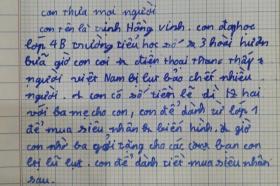 con thưa mọi người
con tên là Vinh Hồng Vinh. con đang học
lớp 4B trường tiểu học số 3 hoài huân
bữa giờ con coi điện thoại thấy
người việt Nam bị lụt bão chết nhiều
người. con có số tiền lẻ đi
với ba mẹ cho con, con để dành từ lớp 1
để mua siêu nhân biến hình. giờ
con nhờ ba gửi tặng cho các bạn con
bị lũ lụt. con để dành tiết mua siêu nhân
sau.